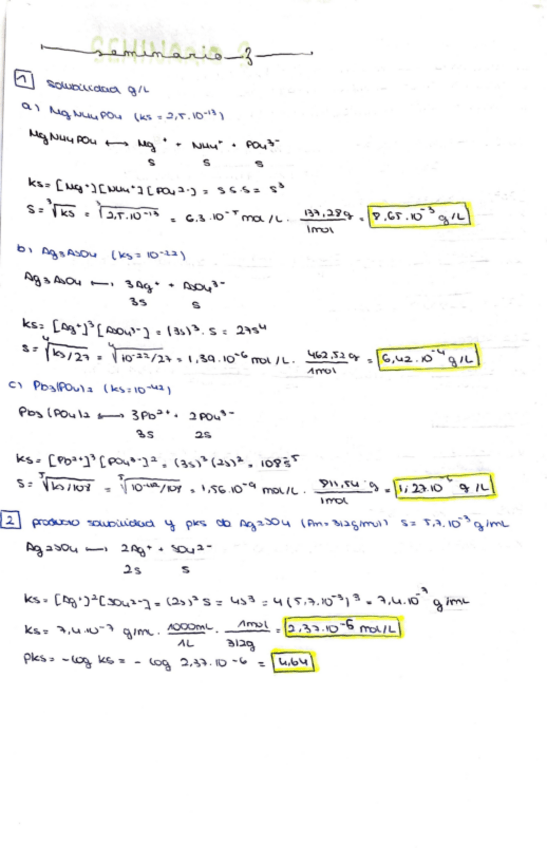 seminario 3
1 solubilidad g/L
a) MgNH4PO4 (ks = 2,5.10⁻¹³)
MgNH4PO4 ⟷ Mg⁺ + NH4⁺ + PO4³⁻
s s s
ks = [Mg⁺][NH4⁺][PO4²⁻] = s.s.s = s³
s = ³√ks = ³√2,5.10⁻¹³ = 6.3.10⁻⁵ mol/L . 137,28g/1mol = 8,65.10⁻³ g/L
b) Ag3AsO4 (ks = 10⁻²²)
Ag3AsO4 ⟷ 3Ag⁺ + AsO4³⁻
3s s
ks = [Ag⁺]³[AsO4³⁻] = (3s)³. s = 27s⁴
s = ⁴√ks/27 = ⁴√10⁻²²/27 = 1,39.10⁻⁶ mol/L . 462,52g/1mol = 6,42.10⁻⁴ g/L
c) Pb3(PO4)2 (ks=10⁻⁴²)
Pb3(PO4)2 ⟷ 3Pb²⁺ + 2PO4³⁻
3s 2s
ks = [Pb²⁺]³[PO4³⁻]² = (3s)³(2s)² = 108s⁵
s = ⁵√ks/108 = ⁵√10⁻⁴²/108 = 1,56.10⁻⁹ mol/L . 811,54 g/1mol = 1,27.10⁻⁶ g/L
2 producto solubilidad y pks do Ag2SO4 (Pm=312g/mol) s = 5,7.10⁻³ g/mL
Ag2SO4 ⟷ 2Ag⁺ + SO4²⁻
2s s
ks = [Ag⁺]²[SO4²⁻] = (2s)² s = 4s³ = 4(5,7.10⁻³)³ = 7,4.10⁻⁷ g/mL
ks = 7,4.10⁻⁷ g/mL . 1000mL/1L . 1mol/312g = 2,37.10⁻⁶ mol/L
pks = -log ks = - log 2,37.10⁻⁶ = 4,64